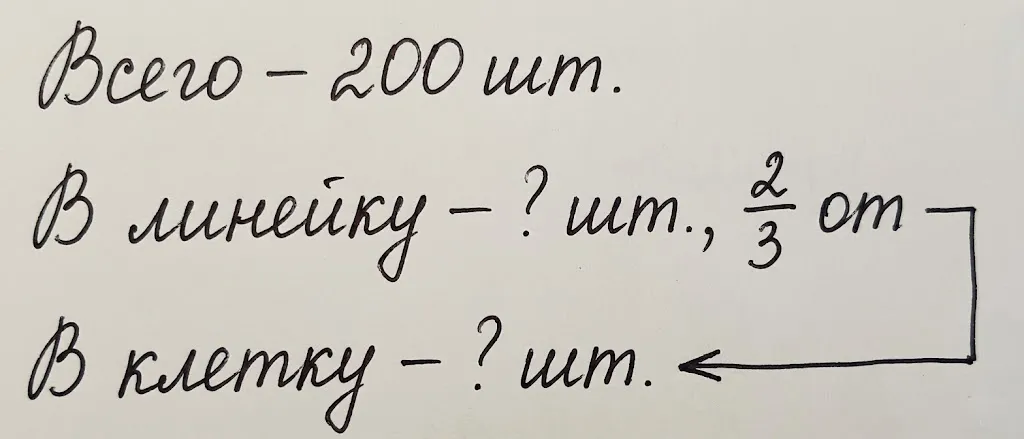 Всего – 200 шт.
В линейку – ? шт., 2/3 от
В клетку – ? шт.